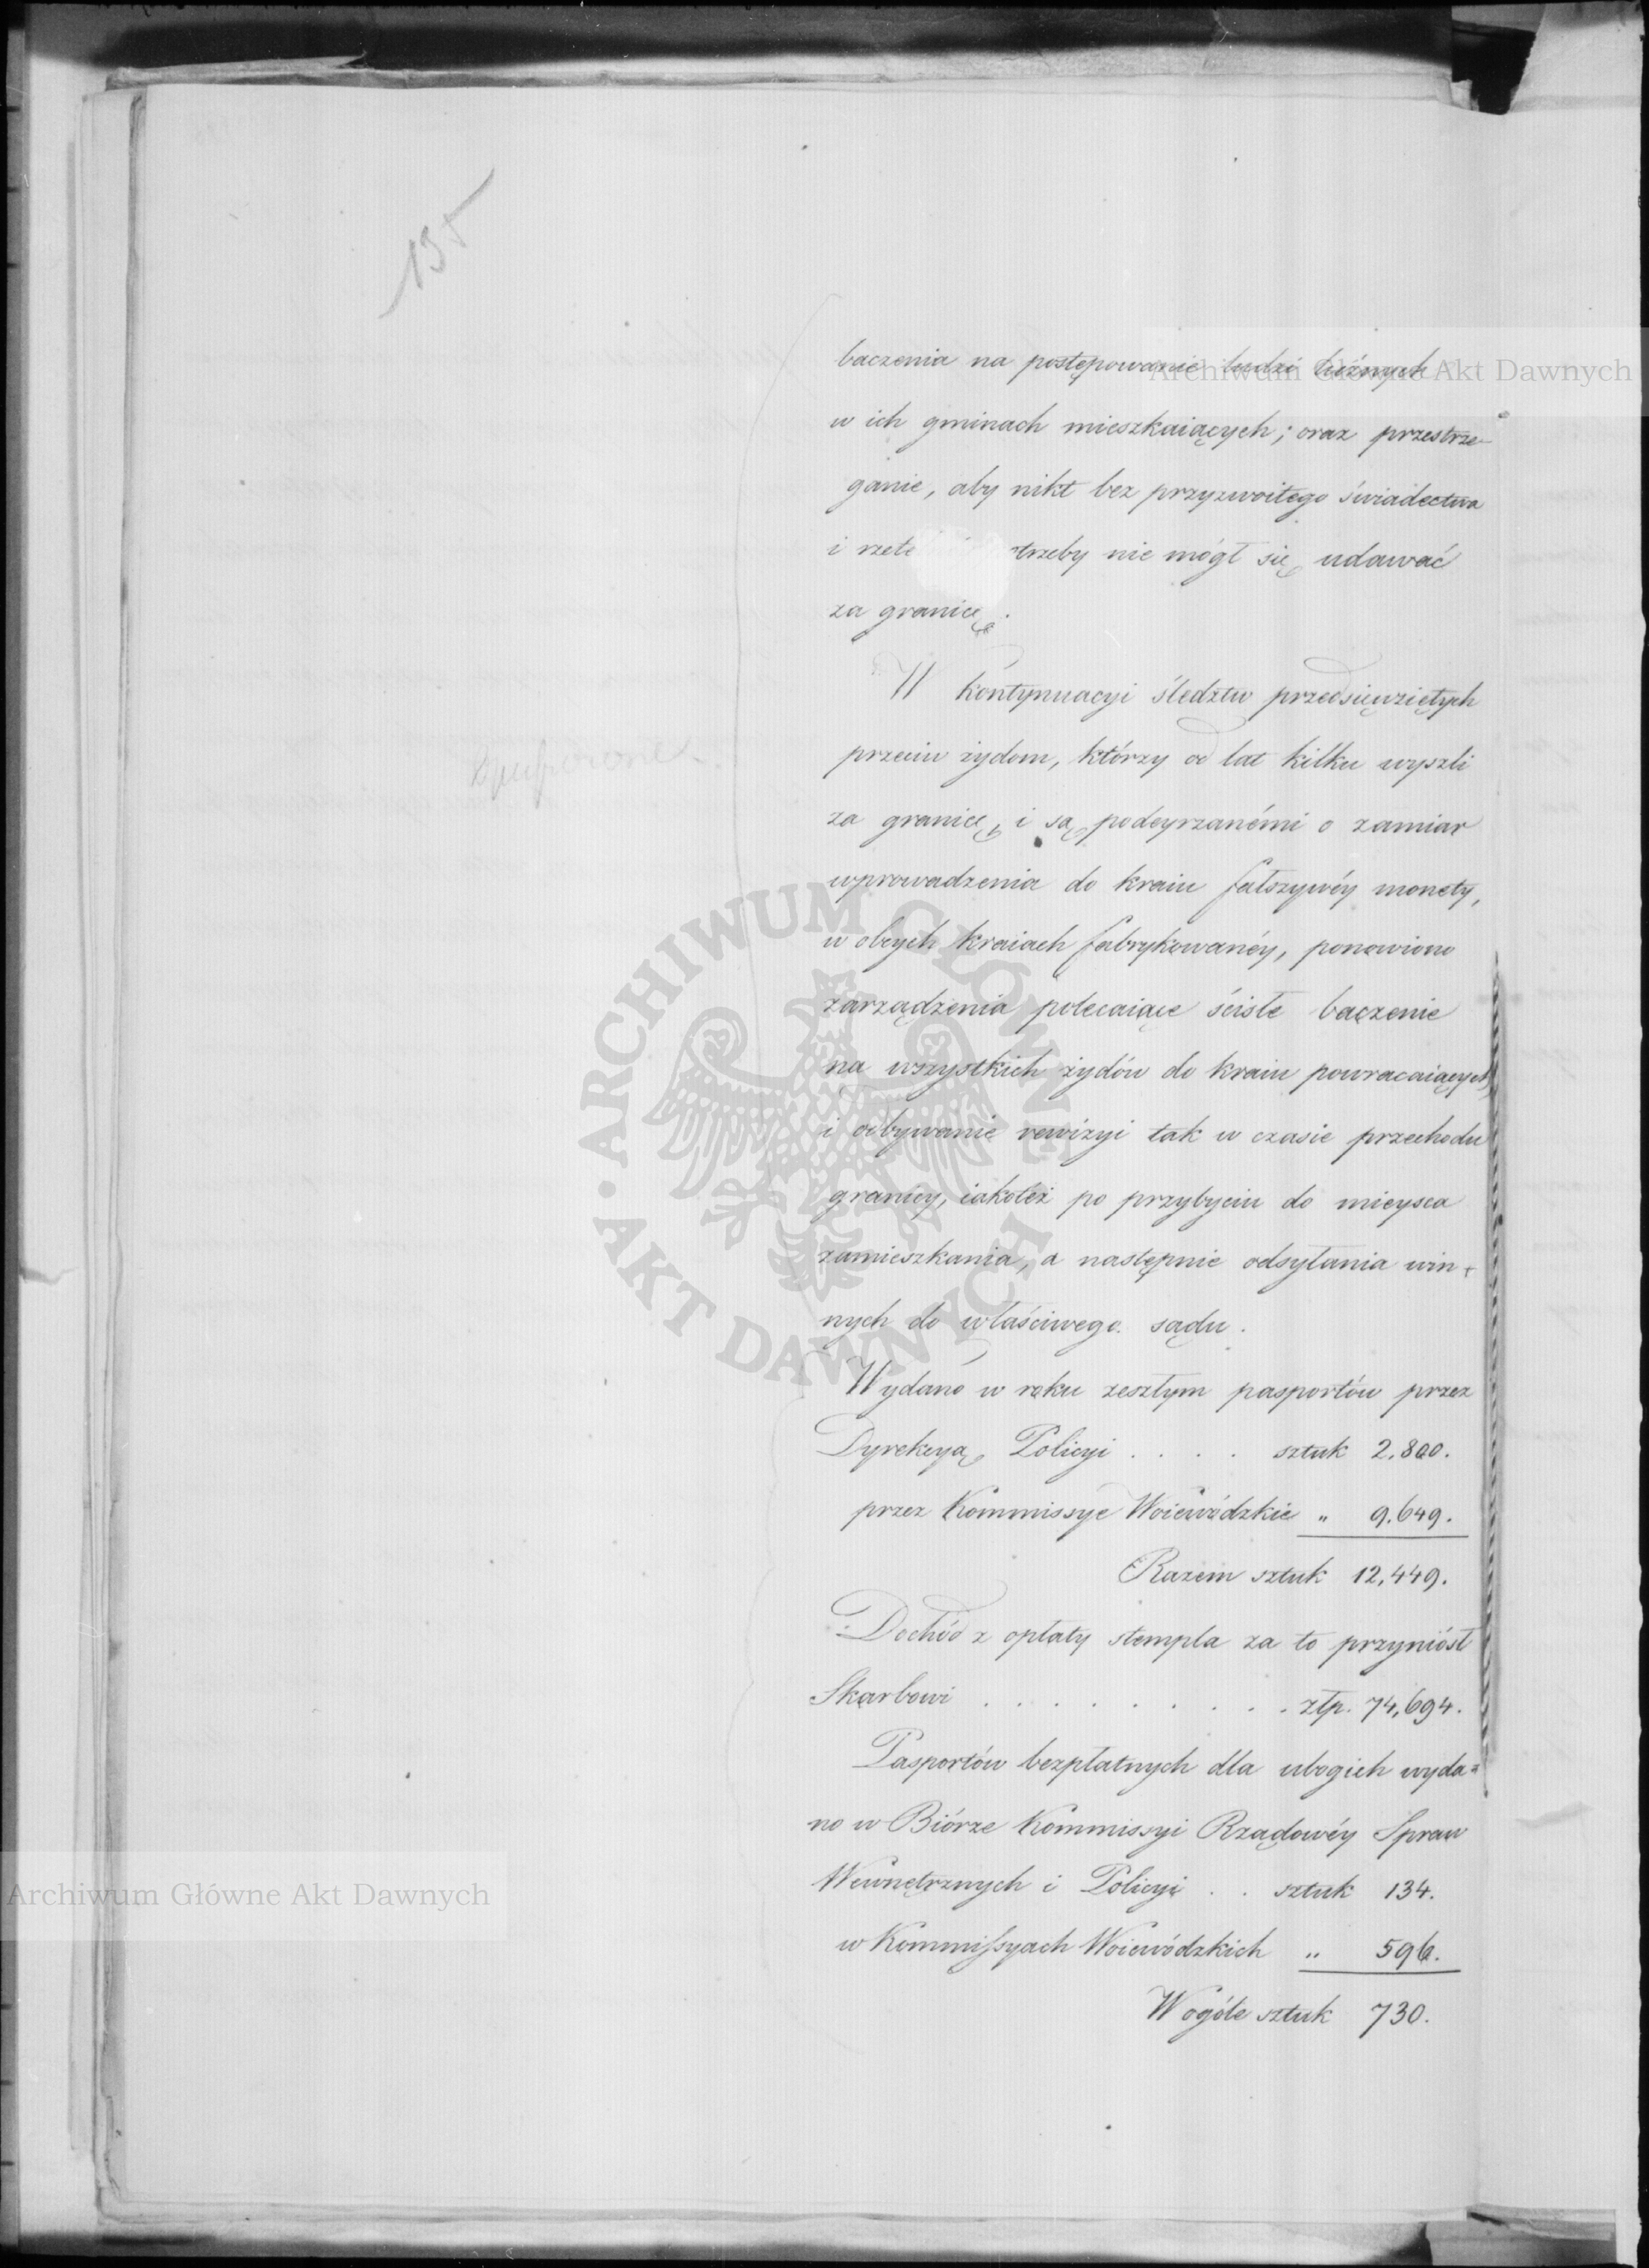 135
baczenia na postępowanie ludzi luźnych
w ich gminach mieszkaiących; oraz przestrze-
ganie, aby nikt bez przyzwoitego świadectwa
i rzete trzeby nie mógł się udawać
za granicę.
W kontynuacyi śledztw przedsięwziętych
przeciw żydom, którzy od lat kilku wyszli
za granicę, i są podeyrzanémi o zamiar
wprowadzenia do kraiu fałszywéy monety,
w obcych kraiach fabrykowanéy, ponowiono
zarządzenia polecaiące ścisłe baczenie
na wszystkich żydów do kraiu powracaiących
i odbywanie rewizyi tak w czasie przechodu
granicy, iakoteż po przybyciu do mieysca
zamieszkania, a następnie odsyłania win-
nych do właściwego sądu.
Wydano w roku zeszłym pasportów przez
Dyrekcyą Policyi . . . . sztuk 2,800.
przez Kommissye Woiewódzkie „ 9,649.
Razem sztuk 12,449.
Dochód z opłaty stempla za to przyniósł
Skarbowi . . . . . . . . . złp. 74,694.
Pasportów bezpłatnych dla ubogich wyda=
no w Biórze Kommissyi Rządowéy Spraw
Wewnętrznych i Policyi . . sztuk 134.
w Kommissyach Woiewódzkich „ 596.
Wogóle sztuk 730.
Archiwum Główne Akt Dawnych
ARCHIWUM GŁÓWNE • AKT DAWNYCH
Archiwum Główne Akt Dawnych